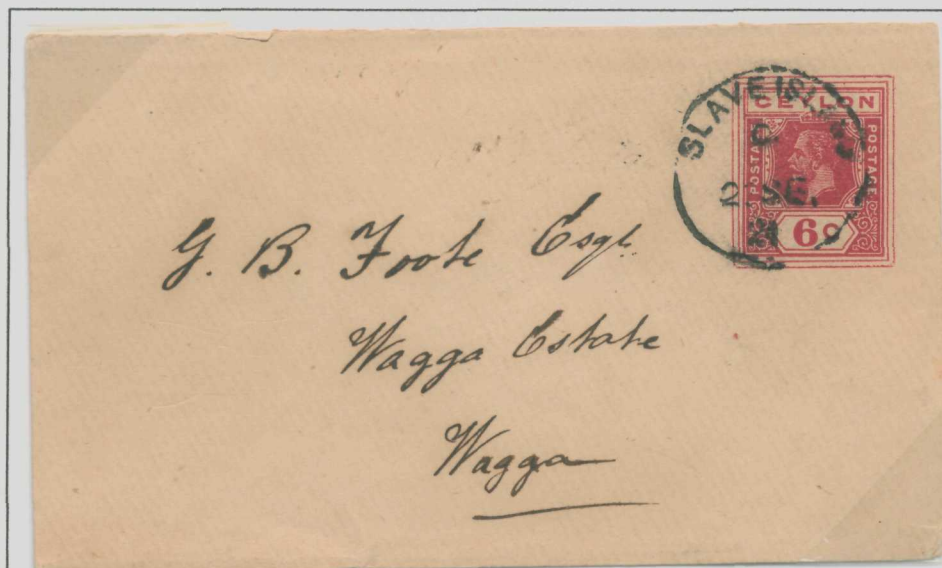 SLAVE ISLAND
C
SE.
CEYLON
POSTAGE
POSTAGE
6c
G. B. Foote Esqr.
Wagga Estate
Wagga